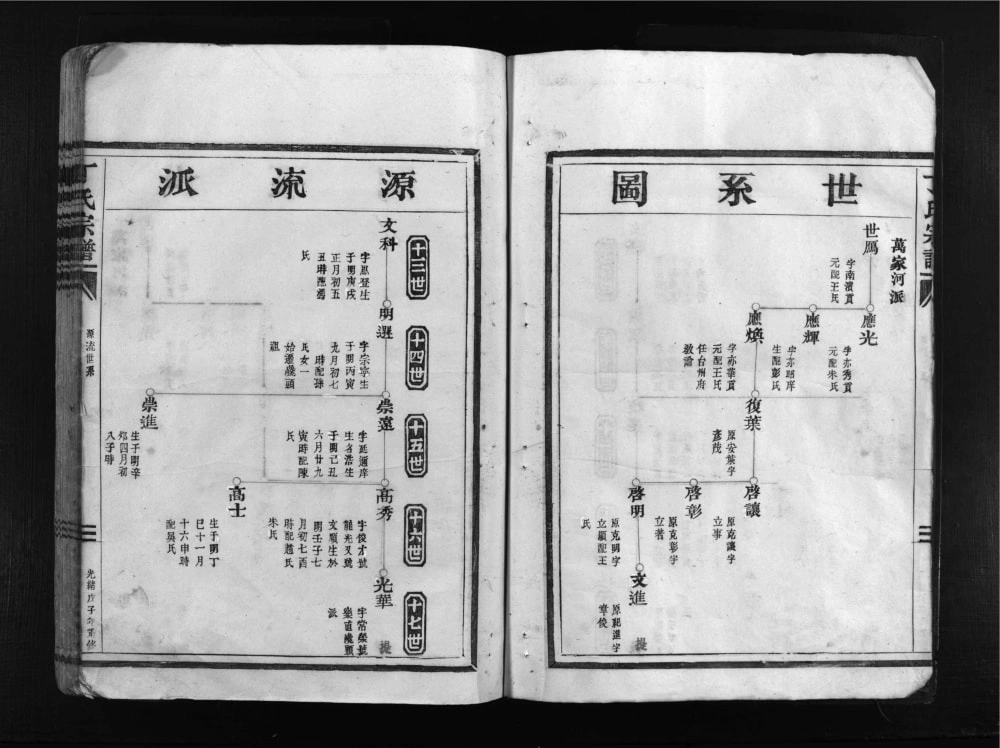 世系圖
萬家河派
世馬
字南濱貢
元配王氏
應光
字亦秀貢
元配朱氏
應輝
字亦昭庠
生配彭氏
應煥
字亦華貢
元配王氏
任台州府
教諭
復葉
原安葉字
彥茂
啓讓
原克讓字
立事
啓彰
原克彰字
立著
啓明
原克明字
立顯配王
氏
文進
原祀進字
章俊
源流派
十三世
十四世
十五世
十六世
十七世
文科
字鳳登生
于明庚戌
正月初五
丑時配馮
氏
明選
字宗寧生
于明丙寅
九月初七
時配孫
氏女一
始遷磯頭
祖
崇遠
字延邇庠
生名浩生
于明己丑
六月廿九
寅時配陳
氏
崇進
生于明辛
卯四月初
八子時
高秀
字俊才號
龍光又號
文順生於
明壬子七
月初七酉
時配趙氏
朱氏
高士
生于明丁
巳十一月
十六申時
配吳氏
光華
字常榮號
樂道磯頭
派
提
丁氏宗譜
源流世系
光緒戊子年重修